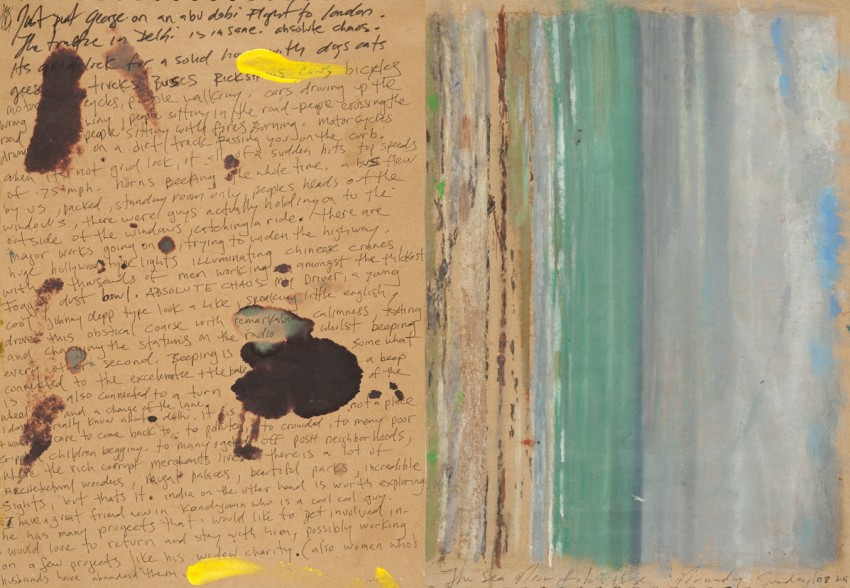 Just put George on an abu dabi Flight to london.
The traffic in Delhi is insane. absolute chaos.
Its grid lock for a solid with dogs cats
trucks Buses Ricks cows bicycles
cycles, people walking. cars driving up the
wrong way, people sitting in the road - people crossing the
road people sitting with Fires Burning. Motorcycles
on a dirt track passing you on the curb.
when its not grid lock, it all of a sudden hits top speeds
of 75 mph. horns Beeping the whole time. a bus flew
by us, packed, standing room only, peoples heads out the
windows, there were guys actually holding on to the
outside of the windows, catching a ride. There are
major works going on, trying to widen the highway.
huge hollywood lights illuminating chinese cranes
with thousands of men working amongst the thickest
dust bowl. ABSOLUTE CHAOS my Driver, a young
cool Johnny depp type look a like, speaking little english,
drove this obstical coarse with remarkable calmness, texting
and changing the stations on the radio whilst beeping
every other second. Beeping is some what
connected to the excelerator + the brake a beep
is also connected to a turn of the
wheel and a change of the lane.
I dont really know about delhi. it is not a place
care to come back to. to polluted to crowded. to many poor
children begging. to many OFF posh neighborhoods,
where the rich corrupt merchants live. there is a lot of
Architectural wonders, palaces, beautiful parks incredible
sights, but thats it. india on the other hand is worth exploring
I have a great friend now in who is a cool cool guy.
he has many progects that i would like to get involved in.
i would love to return and stay with him, possibly working
on a few progects like his widow charity. (also women who's
husbands have abandond them
The Sea